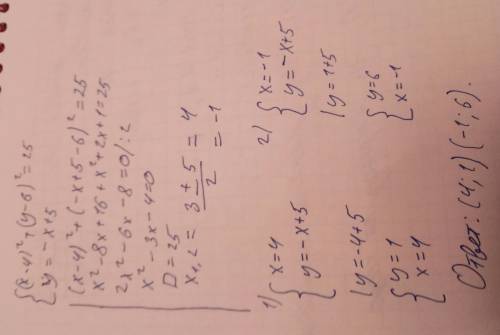 {(x-4)²+(y-6)²=25
y=-x+5
(x-4)²+(-x+5-6)²=25
x²-8x+16+x²+2x+1=25
2x²-6x-8=0/:2
x²-3x-4=0
D=25
x₁,₂=3±5/2=4
=-1
1) {x=4
y=-x+5
{y=-4+5
{y=1
x=4
2) {x=-1
y=-x+5
{y=1+5
{y=6
x=-1
Ответ: (4;1) (-1;6).